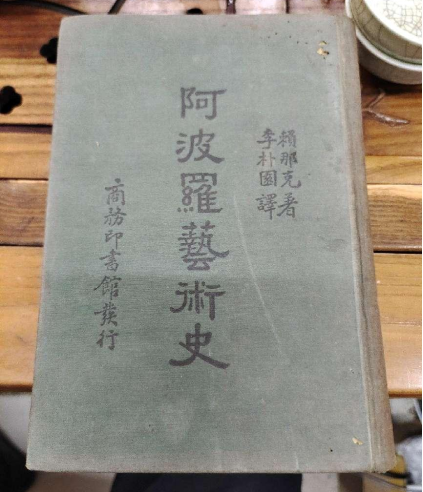 賴那克著
李朴園譯
阿波羅藝術史
商務印書館發行